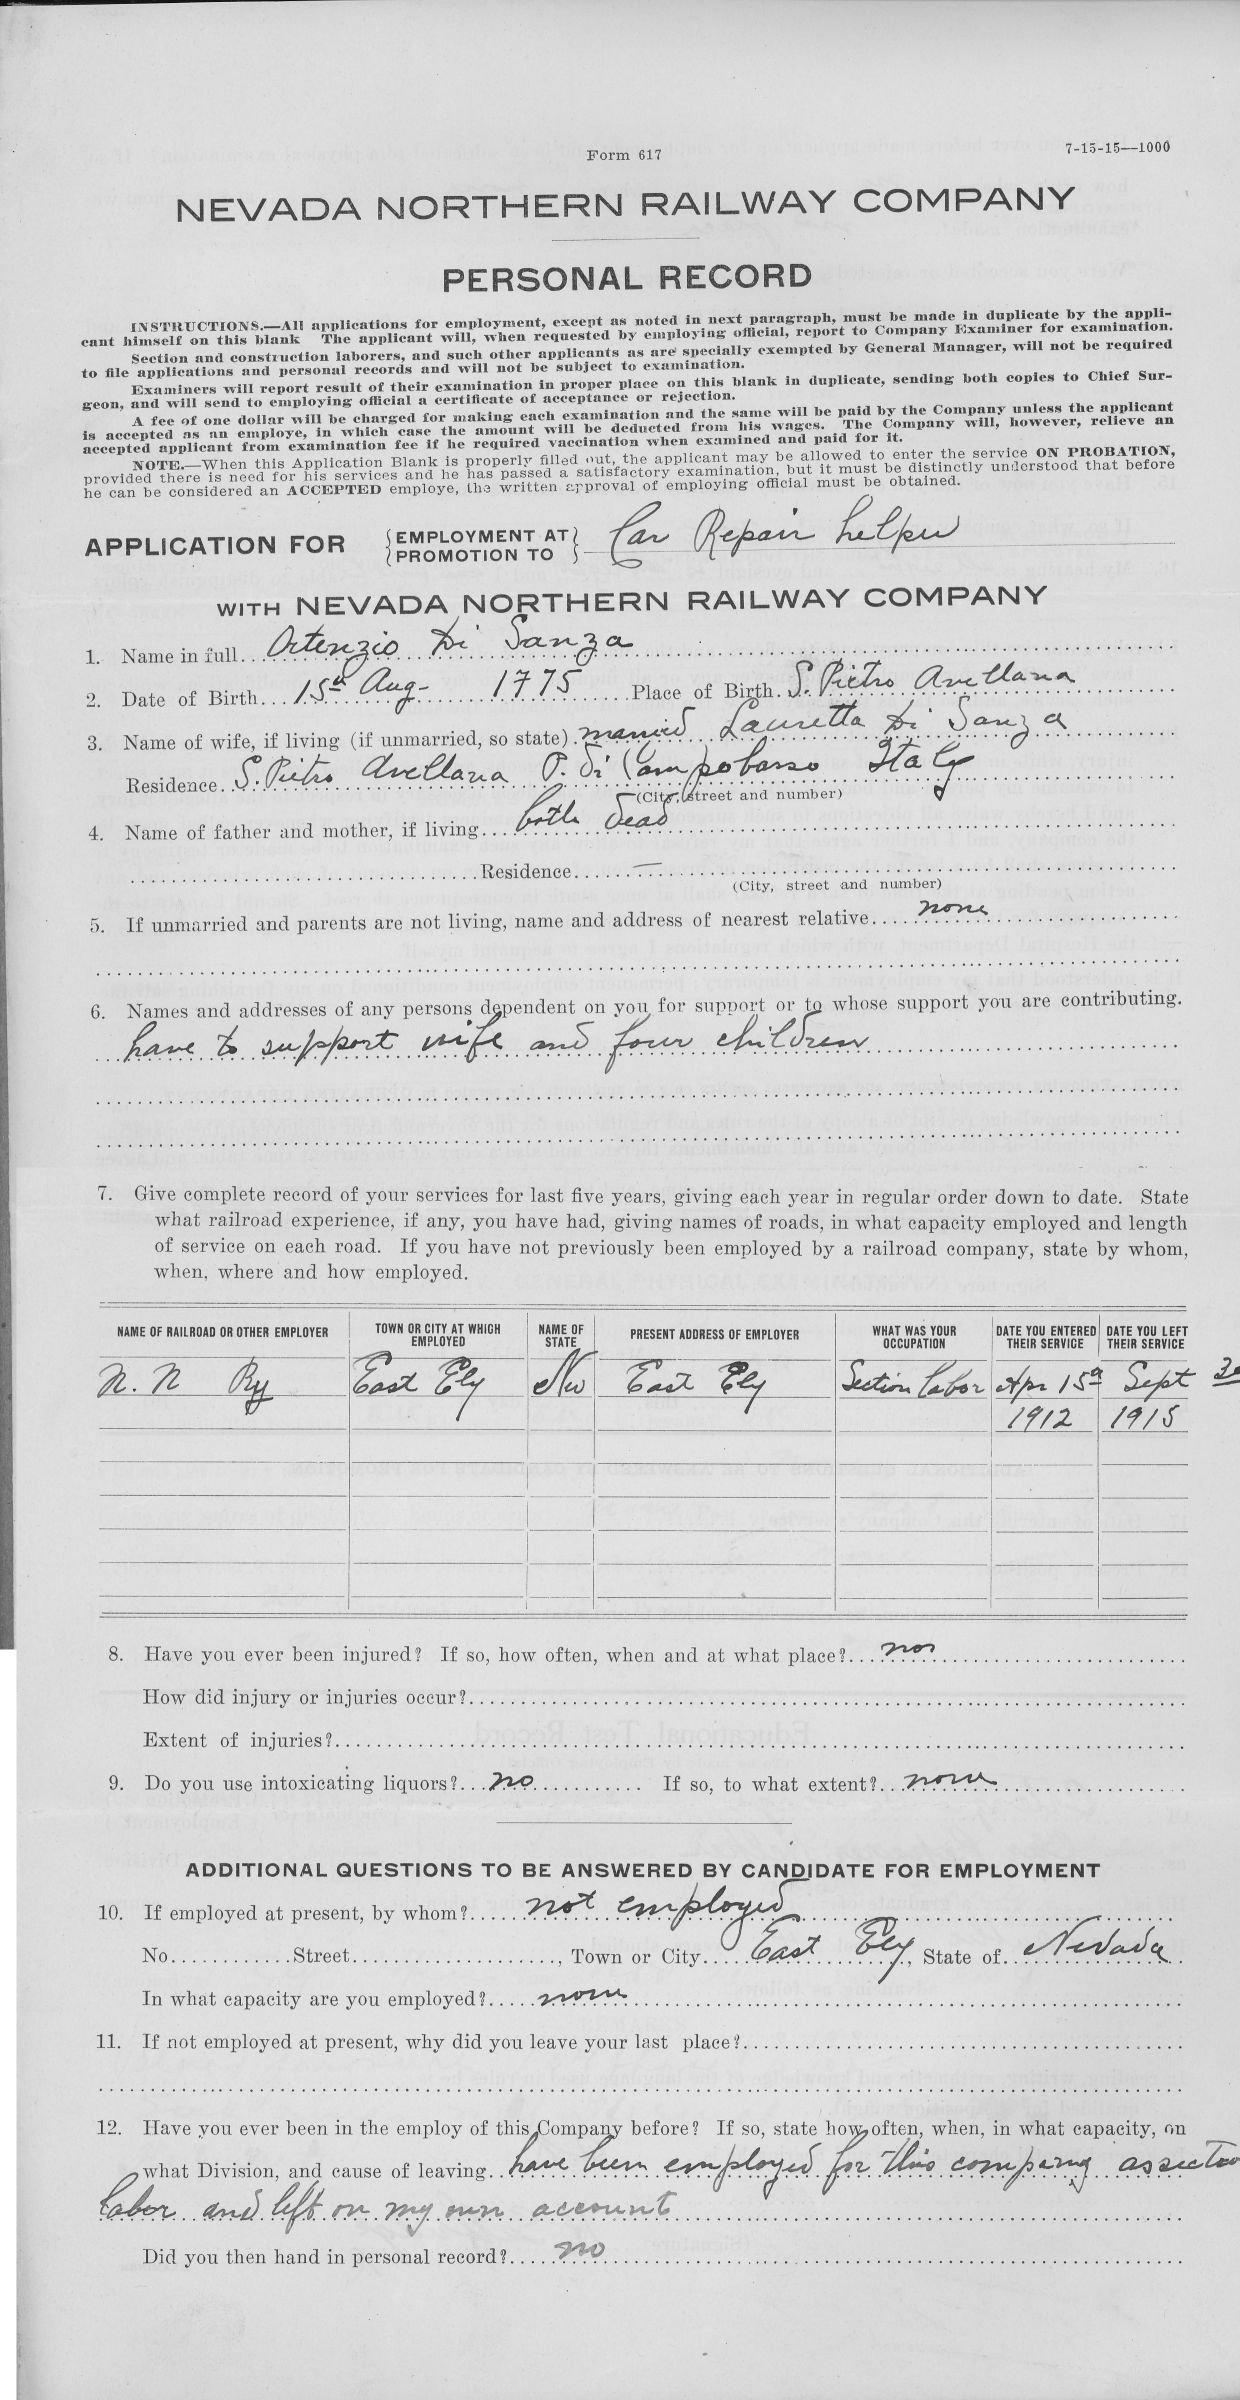 Form 617
7-15-15—1000
NEVADA NORTHERN RAILWAY COMPANY
PERSONAL RECORD
INSTRUCTIONS.—All applications for employment, except as noted in next paragraph, must be made in duplicate by the appli-
cant himself on this blank The applicant will, when requested by employing official, report to Company Examiner for examination.
Section and construction laborers, and such other applicants as are specially exempted by General Manager, will not be required
to file applications and personal records and will not be subject to examination.
Examiners will report result of their examination in proper place on this blank in duplicate, sending both copies to Chief Sur-
geon, and will send to employing official a certificate of acceptance or rejection.
A fee of one dollar will be charged for making each examination and the same will be paid by the Company unless the applicant
is accepted as an employe, in which case the amount will be deducted from his wages. The Company will, however, relieve an
accepted applicant from examination fee if he required vaccination when examined and paid for it.
NOTE.—When this Application Blank is properly filled out, the applicant may be allowed to enter the service ON PROBATION,
provided there is need for his services and he has passed a satisfactory examination, but it must be distinctly understood that before
he can be considered an ACCEPTED employe, the written approval of employing official must be obtained.
APPLICATION FOR {EMPLOYMENT AT} Car Repair helper
{PROMOTION TO}
WITH NEVADA NORTHERN RAILWAY COMPANY
1. Name in full Ortenzio Di Sanza
2. Date of Birth 15th Aug- 1775 Place of Birth S. Pietro Avellana
3. Name of wife, if living (if unmarried, so state) married Lauretta Di Sanza
Residence S. Pietro Avellana P. di Campobasso Italy
(City, street and number)
4. Name of father and mother, if living both dead
Residence —
(City, street and number)
5. If unmarried and parents are not living, name and address of nearest relative none
6. Names and addresses of any persons dependent on you for support or to whose support you are contributing.
have to support wife and four children
7. Give complete record of your services for last five years, giving each year in regular order down to date. State
what railroad experience, if any, you have had, giving names of roads, in what capacity employed and length
of service on each road. If you have not previously been employed by a railroad company, state by whom,
when, where and how employed.
NAME OF RAILROAD OR OTHER EMPLOYER TOWN OR CITY AT WHICH EMPLOYED NAME OF STATE PRESENT ADDRESS OF EMPLOYER WHAT WAS YOUR OCCUPATION DATE YOU ENTERED THEIR SERVICE DATE YOU LEFT THEIR SERVICE
N. N Ry East Ely Nev East Ely Section labor Apr 15th Sept 30
1912 1915
8. Have you ever been injured? If so, how often, when and at what place? no
How did injury or injuries occur?
Extent of injuries?
9. Do you use intoxicating liquors? no If so, to what extent? none
ADDITIONAL QUESTIONS TO BE ANSWERED BY CANDIDATE FOR EMPLOYMENT
10. If employed at present, by whom? not employed
No. Street , Town or City East Ely, State of Nevada
In what capacity are you employed? none
11. If not employed at present, why did you leave your last place?
12. Have you ever been in the employ of this Company before? If so, state how often, when, in what capacity, on
what Division, and cause of leaving have been employed for this company as section
labor and left on my own account
Did you then hand in personal record? no